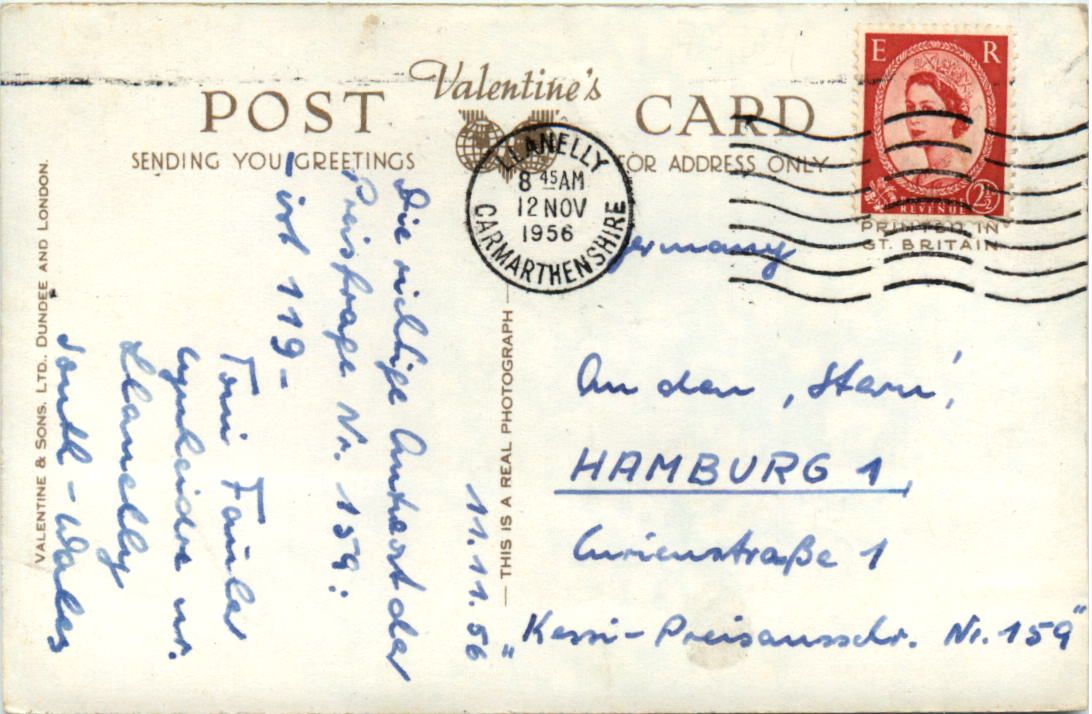 Valentine's
POST CARD
SENDING YOU GREETINGS
FOR ADDRESS ONLY
LLANELLY
8 45 AM
12 NOV
1956
CARMARTHENSHIRE
E R
REVENUE 2½
PRINTED IN
GT. BRITAIN
VALENTINE & SONS, LTD., DUNDEE AND LONDON.
THIS IS A REAL PHOTOGRAPH
11.11.56
Die richtige Antwort der
Preisfrage Nr. 159:
- ist 119 -
Toni
nr.
Llanelly
South-Wales
Germany
An den 'Stern',
HAMBURG 1,
Curienstraße 1
"Kessi-Preisausschr. Nr. 159"